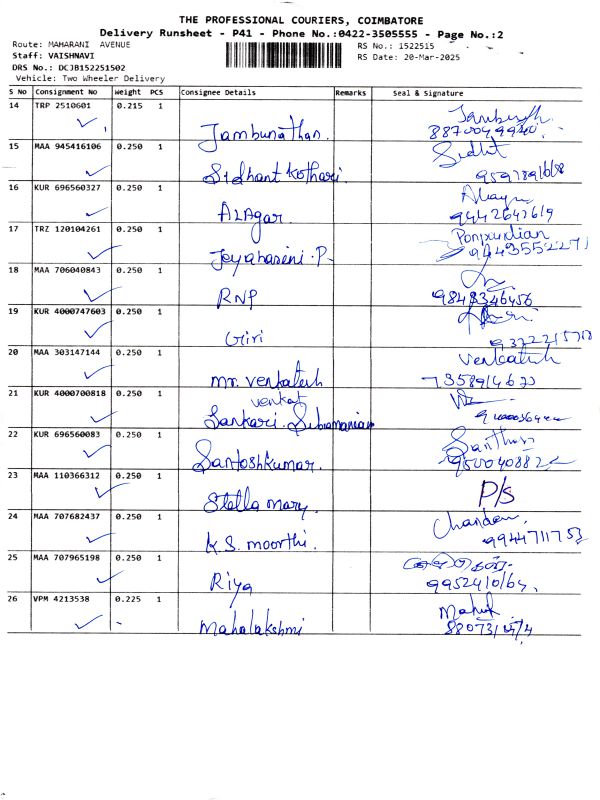 THE PROFESSIONAL COURIERS, COIMBATORE
Delivery Runsheet - P41 - Phone No.:0422-3505555 - Page No.:2
Route: MAHARANI AVENUE
RS No.: 1522515
Staff: VAISHNAVI
RS Date: 20-Mar-2025
DRS No.: DCJB152251502
Vehicle: Two Wheeler Delivery
S No Consignment No Weight PCS Consignee Details Remarks Seal & Signature
14 TRP 2510601 0.215 1
Jambunathan
15 MAA 945416106 0.250 1
Sidhant Kothari
16 KUR 696560327 0.250 1
Alagar
9442642619
17 TRZ 120104261 0.250 1
Ponpandian
Jeyahaseni.P
9443552271
18 MAA 706040843 0.250 1
RNP
9848346456
19 KUR 4000747603 0.250 1
Giri
20 MAA 303147144 0.250 1
Venkatesh
Mr. Venkatesh
7358914673
21 KUR 4000700818 0.250 1
Venkat
Sankari. Subramanian
22 KUR 696560083 0.250 1
Santhosh
Santoshkumar.
23 MAA 110366312 0.250 1
P/S
Stella mary.
24 MAA 707682437 0.250 1
Chandan
K.S. moorthi.
9944711753
25 MAA 707965198 0.250 1
Riya
26 VPM 4213538 0.225 1
Mahalakshmi